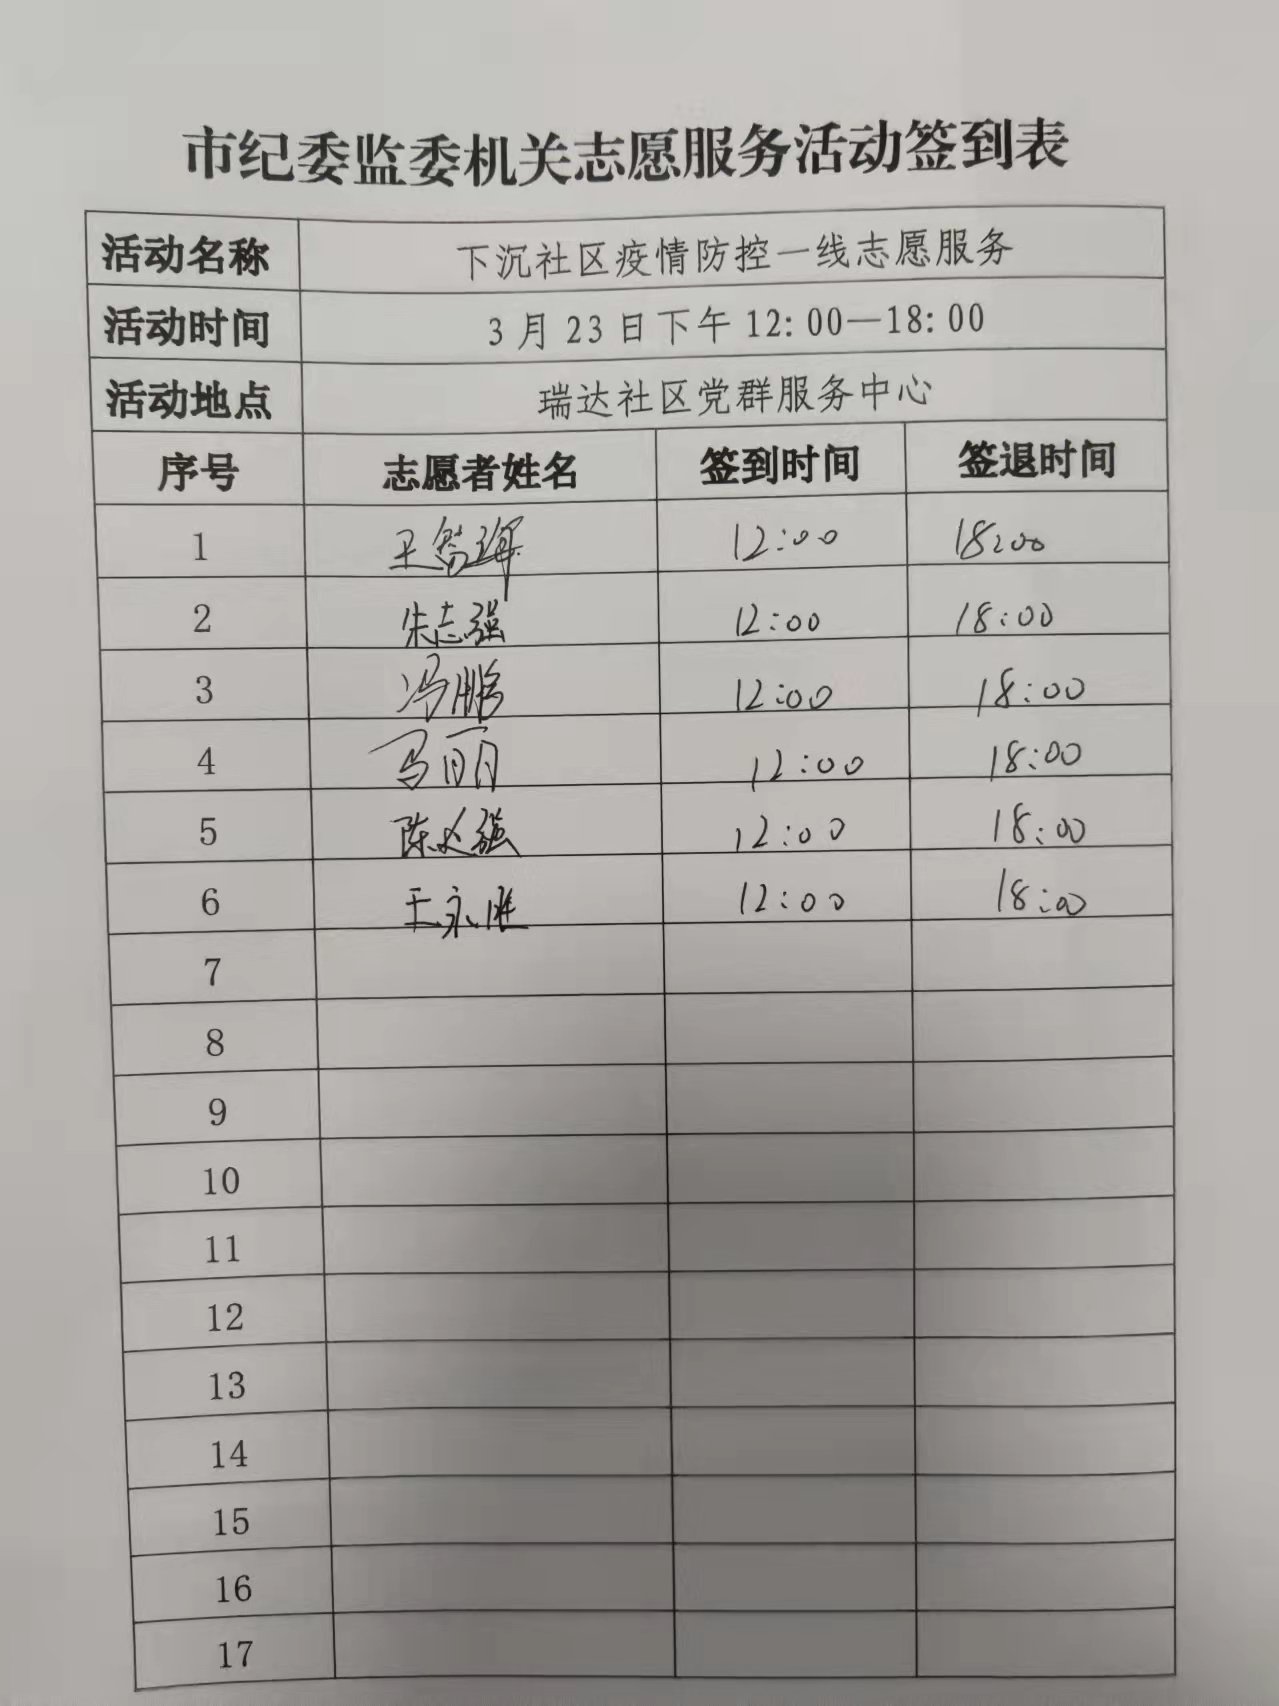 市纪委监委机关志愿服务活动签到表
活动名称 下沉社区疫情防控一线志愿服务
活动时间 3月23日下午12:00—18:00
活动地点 瑞达社区党群服务中心
序号 志愿者姓名 签到时间 签退时间
1 王 12:00 18:00
2 朱志强 12:00 18:00
3 冯鹏 12:00 18:00
4 马丽 12:00 18:00
5 陈 强 12:00 18:00
6 王永胜 12:00 18:00
7
8
9
10
11
12
13
14
15
16
17